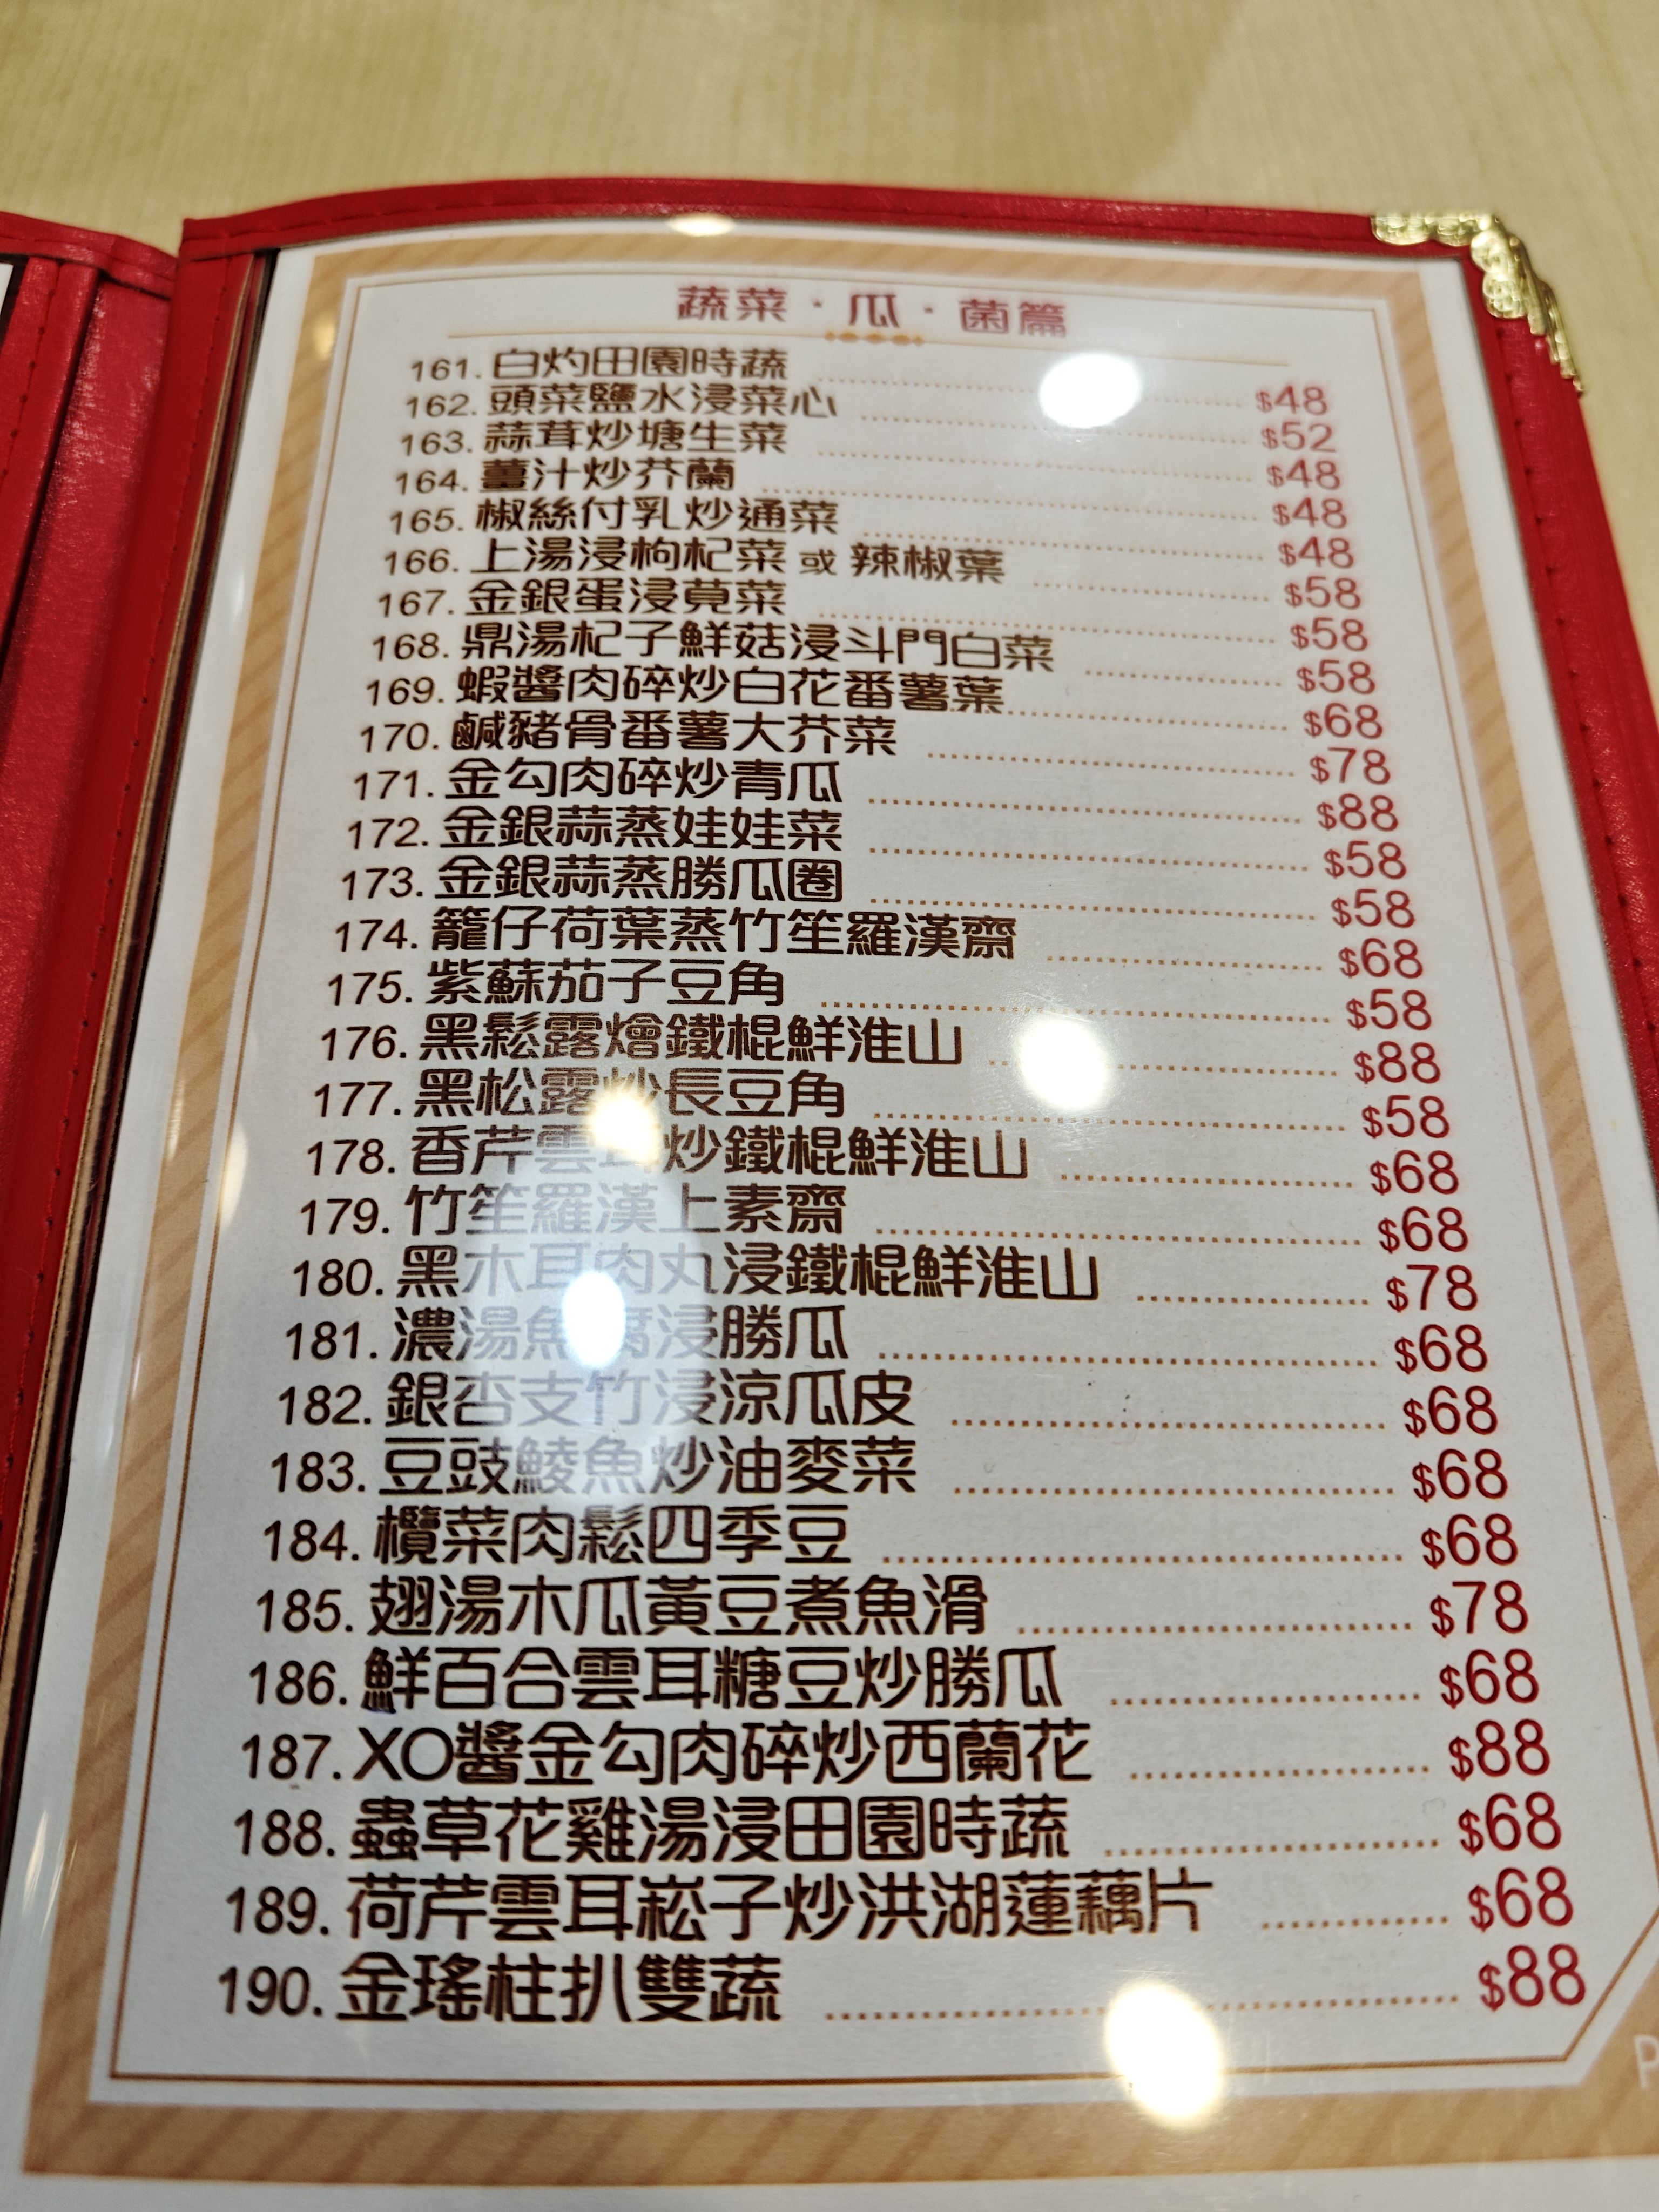 蔬菜·瓜·菌篇
161. 白灼田園時蔬 $48
162. 頭菜鹽水浸菜心 $52
163. 蒜茸炒塘生菜 $48
164. 薑汁炒芥蘭 $48
165. 椒絲付乳炒通菜 $48
166. 上湯浸枸杞菜 或 辣椒葉 $58
167. 金銀蛋浸莧菜 $58
168. 鼎湯杞子鮮菇浸斗門白菜 $58
169. 蝦醬肉碎炒白花番薯葉 $68
170. 鹹豬骨番薯大芥菜 $78
171. 金勾肉碎炒青瓜 $88
172. 金銀蒜蒸娃娃菜 $58
173. 金銀蒜蒸勝瓜圈 $58
174. 籠仔荷葉蒸竹笙羅漢齋 $68
175. 紫蘇茄子豆角 $58
176. 黑鬆露燴鐵棍鮮淮山 $88
177. 黑松露炒長豆角 $58
178. 香芹雲耳炒鐵棍鮮淮山 $68
179. 竹笙羅漢上素齋 $68
180. 黑木耳肉丸浸鐵棍鮮淮山 $78
181. 濃湯魚腐浸勝瓜 $68
182. 銀杏支竹浸涼瓜皮 $68
183. 豆豉鯪魚炒油麥菜 $68
184. 欖菜肉鬆四季豆 $68
185. 翅湯木瓜黃豆煮魚滑 $78
186. 鮮百合雲耳糖豆炒勝瓜 $68
187. XO醬金勾肉碎炒西蘭花 $88
188. 蟲草花雞湯浸田園時蔬 $68
189. 荷芹雲耳崧子炒洪湖蓮藕片 $68
190. 金瑤柱扒雙蔬 $88
P